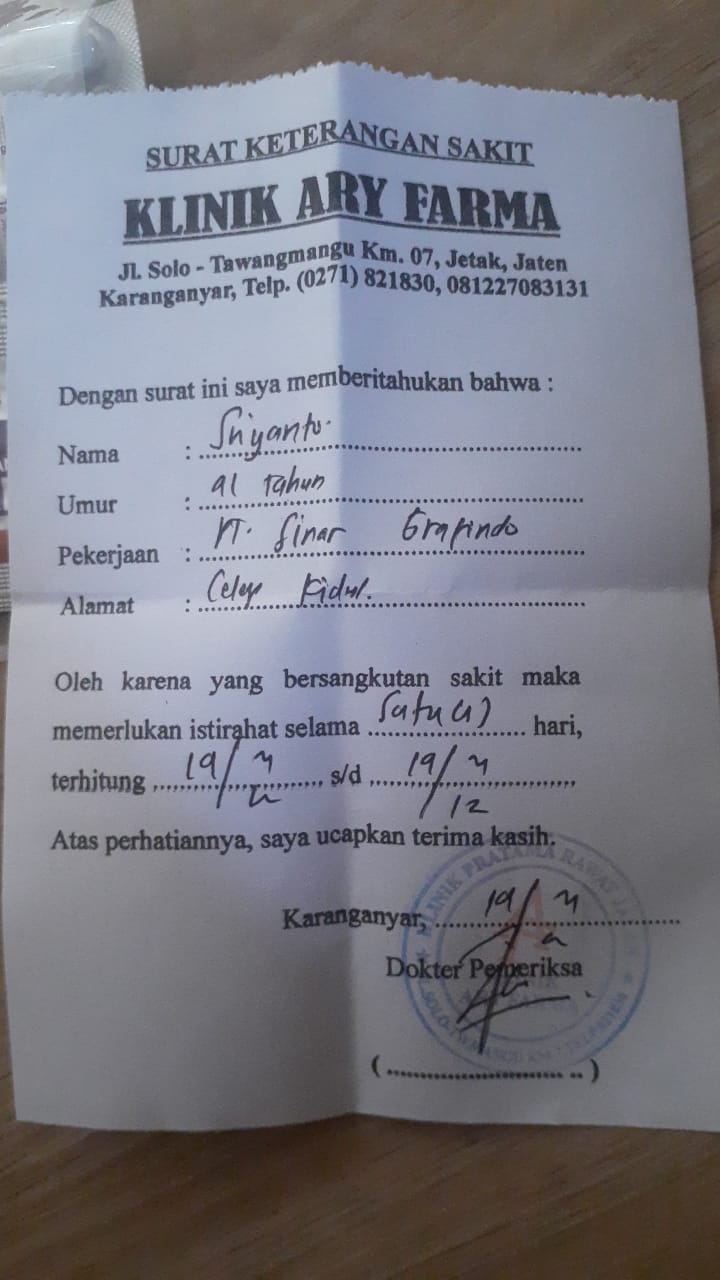 SURAT KETERANGAN SAKIT
KLINIK ARY FARMA
Jl. Solo - Tawangmangu Km. 07, Jetak, Jaten
Karanganyar, Telp. (0271) 821830, 081227083131
Dengan surat ini saya memberitahukan bahwa :
Nama : Sriyanto.
Umur : 41 Tahun
Pekerjaan : PT. Sinar Grafindo
Alamat : Kidul.
Oleh karena yang bersangkutan sakit maka
memerlukan istirahat selama Satu (1) hari,
terhitung 19/ s/d 19/12
Atas perhatiannya, saya ucapkan terima kasih.
Karanganyar, 19/
Dokter Pemeriksa
KLINIK PRATAMA RAWAT
(.............................)